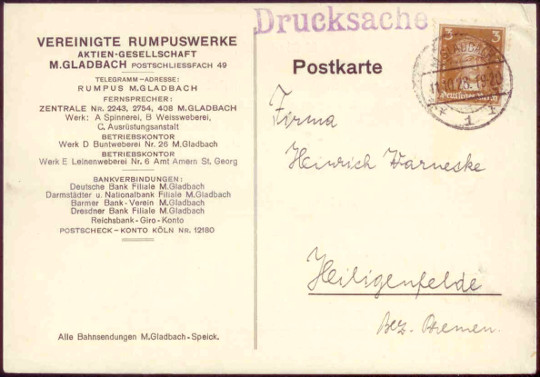 Drucksache
VEREINIGTE RUMPUSWERKE
AKTIEN-GESELLSCHAFT
M.GLADBACH POSTSCHLIESSFACH 49
TELEGRAMM-ADRESSE:
RUMPUS M.GLADBACH
FERNSPRECHER:
ZENTRALE NR. 2243, 2754, 408 M.GLADBACH
Werk: A Spinnerei, B Weissweberei,
C. Ausrüstungsanstalt
BETRIEBSKONTOR
Werk D Buntweberei Nr. 26 M.Gladbach
BETRIEBSKONTOR
Werk E Leinenweberei Nr. 6 Amt Amern St. Georg
BANKVERBINDUNGEN:
Deutsche Bank Filiale M.Gladbach
Darmstädter u. Nationalbank Filiale M.Gladbach
Barmer Bank-Verein M.Gladbach
Dresdner Bank Filiale M.Gladbach
Reichsbank-Giro-Konto
POSTSCHECK-KONTO KÖLN NR. 12180
Alle Bahnsendungen M.Gladbach-Speick.
Postkarte
3 3
Deutsches Reich
1
Firma
Heinrich Warneske
Heiligenfelde
Bez. Bremen.